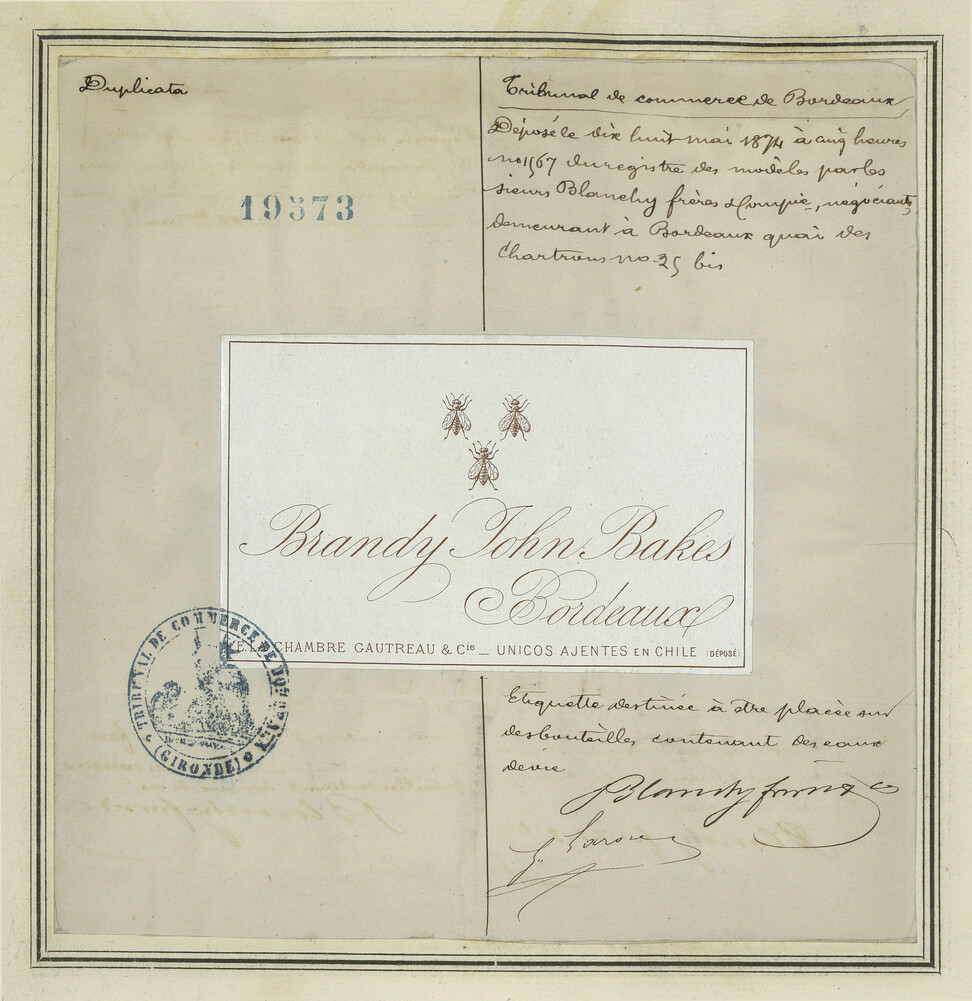 Duplicata
19573
Tribunal de commerce de Bordeaux
Déposé le dix huit mai 1874 à cinq heures
no 1567 du registre des modèles par les
sieurs Blanchy frères & Compie, négociants
demeurant à Bordeaux quai des
Chartrons no 25 bis
Brandy John Bakes
Bordeaux
DE LA CHAMBRE GAUTREAU & Cie _ UNICOS AJENTES EN CHILE (DÉPOSÉ)
TRIBUNAL DE COMMERCE DE BORDEAUX
(GIRONDE)
Etiquette destinée à être placée sur
des bouteilles contenant des eaux
de vie
Blanchy frères & Co